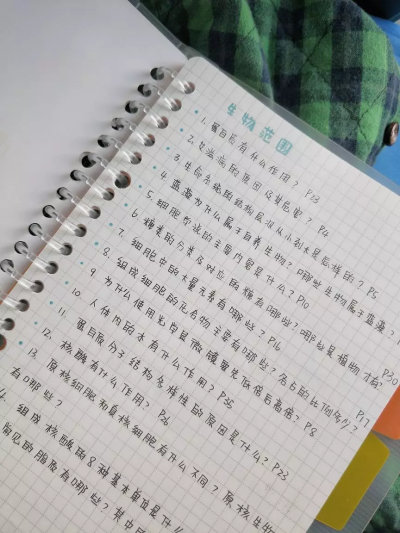 生物范围
1. 蛋白质有什么作用? P23
2. 的原因及其危害? P4
3. 生命系统的结构层次从小到大是怎样的? P5
4. 蓝藻为什么属于自养生物? 哪些生物属于蓝藻? P
5. 细胞学说的主要内容是什么? P10
6. 糖类的分类及对应的糖有哪些? 哪些是植物才有? P30
7. 细胞中的大量元素有哪些? P16
8. 组成细胞的化合物主要有哪些? 各占的比例多少? P17
9. 为什么使用光学显微镜要先低倍后高倍? P8
10. 人体内的水有什么作用? P35
11. 蛋白质分子结构多样性的原因是什么? P23
12. 核酸有什么作用? P26
13. 原核细胞和真核细胞有什么不同? 原核生物
有哪些?
4. 组成核酸的8种基本单位是什么
常见的脂质有哪些? 其中